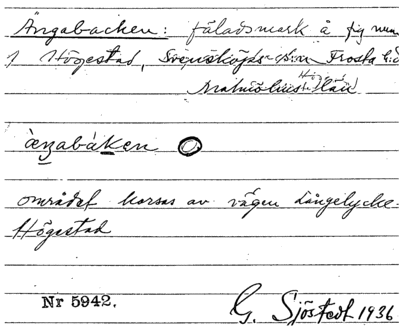 Ängabacken: fäladsmark å fig num
1 Högestad, Svensköps s:n Frosta h:d
Malmöhus län
Högestad
område korsas av vägen Långelycke-
Högestad
Nr 5942.
G. Sjöstedt 1936